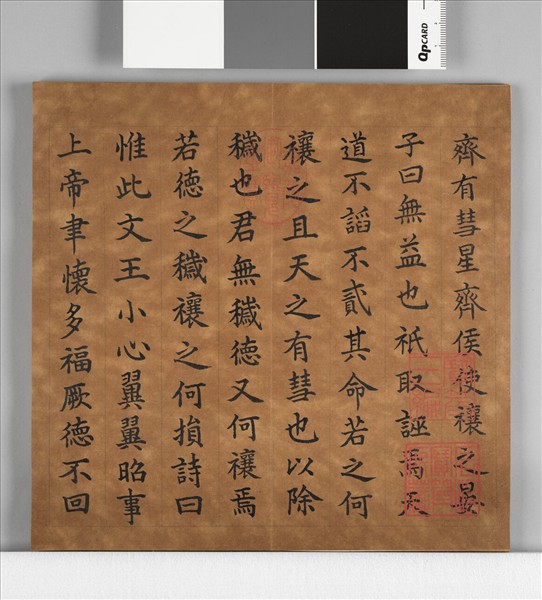 齊有彗星齊侯使禳之晏
子曰無益也祇取誣焉天
道不謟不貳其命若之何
禳之且天之有彗也以除
穢也君無穢德又何禳焉
若德之穢禳之何損詩曰
惟此文王小心翼翼昭事
上帝聿懷多福厥德不回
QPCARD